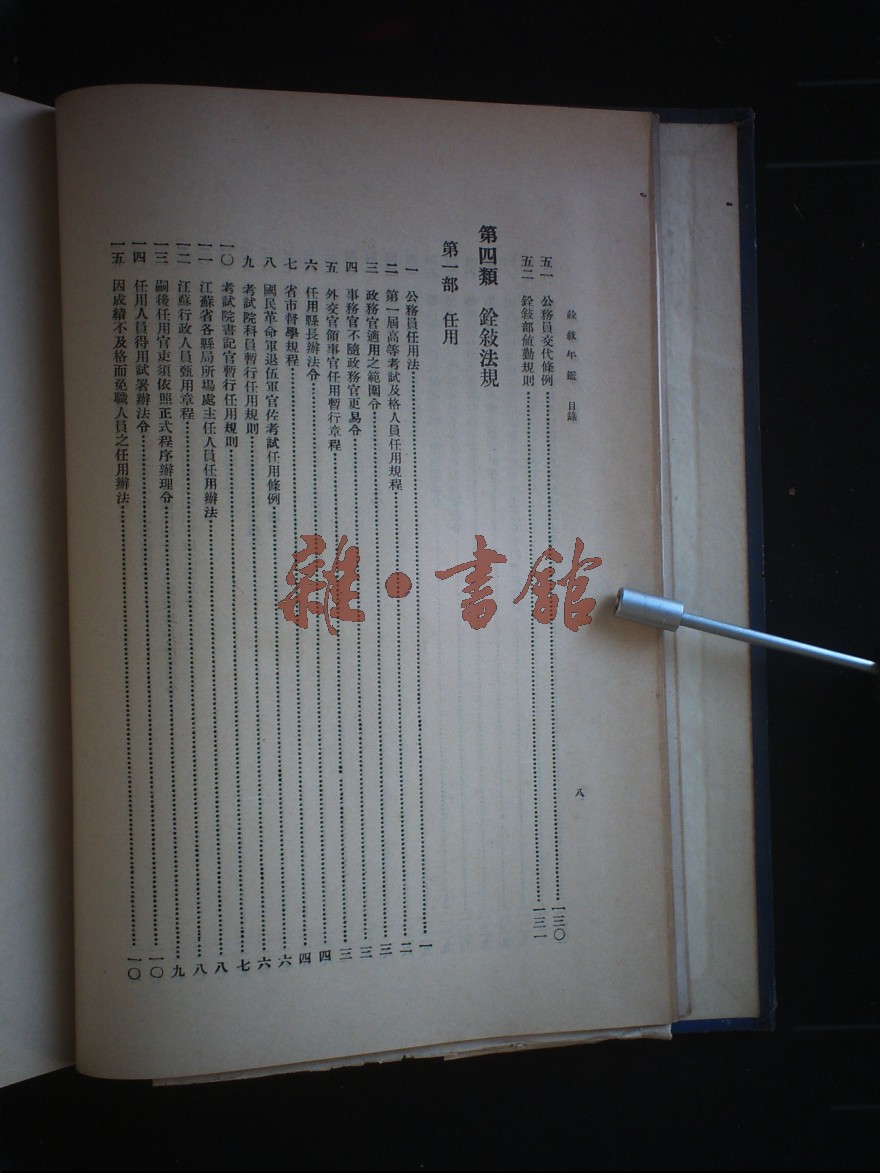 銓敘年鑑　目錄
八
五一　公務員交代條例……一三〇
五二　銓敘部值勤規則……一三一
第四類　銓敘法規
第一部　任用
一　公務員任用法……一
二　第一屆高等考試及格人員任用規程……二
三　政務官適用之範圍令……三
四　事務官不隨政務官更易令……三
五　外交官領事官任用暫行章程……三
六　任用縣長辦法令……四
七　省市督學規程……四
八　國民革命軍退伍軍官佐考試任用條例……六
九　考試院科員暫行任用規則……六
一〇　考試院書記官暫行任用規則……七
一一　江蘇省各縣局所場處主任人員任用辦法……八
一二　江蘇行政人員甄用章程……八
一三　嗣後任用官吏須依照正式程序辦理令……九
一四　任用人員得用試署辦法令……一〇
一五　因成績不及格而免職人員之任用辦法……一〇
雜·書館